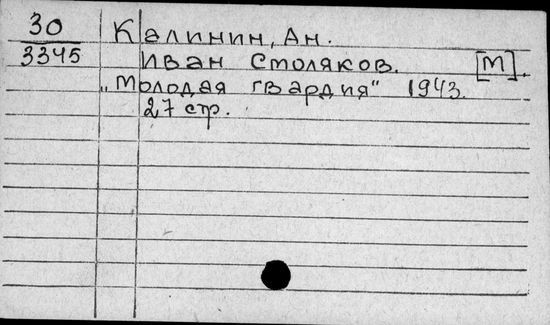 30 Калинин, Ан.
3345 Иван Столяков. [М].
„Молодая гвардия" 1943.
27 стр.